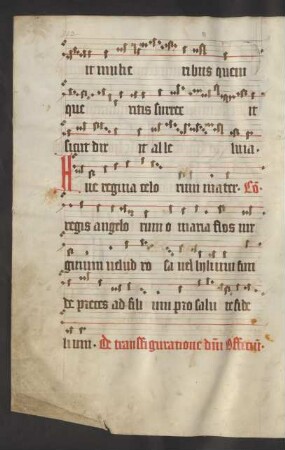 it mulie ribus quem
que ritis surrex it
sicut dix it alle luia.
Ave regina celo rum mater. Cō
regis angelo rum o maria flos vir
ginum velud ro sa vel lylium fun
de preces ad fili um pro salu te fide
lium. De transfiguratione dñi